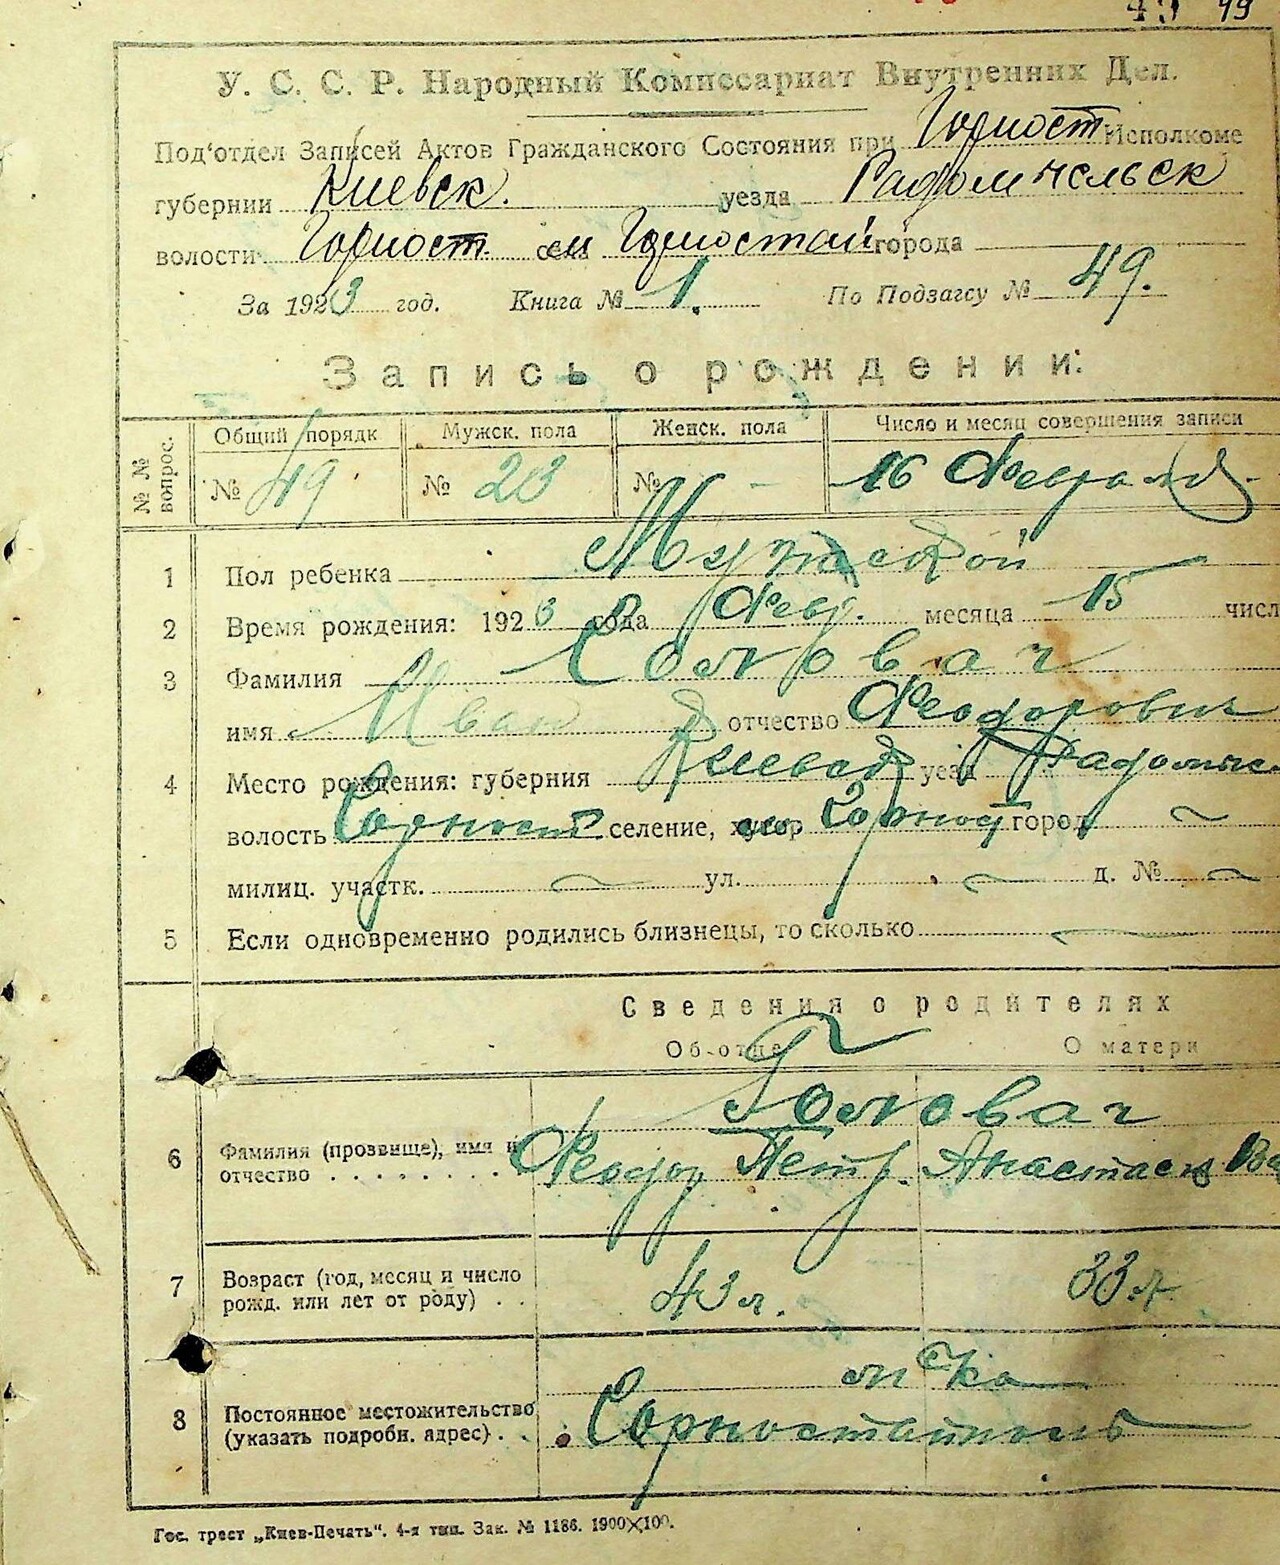 49
У. С. С. Р. Народный Комиссариат Внутренних Дел.
Под'отдел Записей Актов Гражданского Состояния при Горност Исполкоме
губернии Киевск. уезда Радомысльск
волости Горност. м Горностай города
За 1923 год. Книга № 1. По Подзагсу № 49.
Запись о рождении:
№№ вопрос. Общий порядк Мужск. пола Женск. пола Число и месяц совершения записи
№ 49 № 23 № - 16 Февраля
1 Пол ребенка Мужской
2 Время рождения: 1923 года Февр. месяца 15 числ
3 Фамилия Головач
имя Иван отчество Феодорович
4 Место рождения: губерния Киевск уезд Радомыс
волость Горност селение, хутор Горност город
милиц. участк. ул. д. №
5 Если одновременно родились близнецы, то сколько
Сведения о родителях
Об отце О матери
Головач
6 Фамилия (прозвище), имя и
отчество Феодор Петр. Анастасия Ва
7 Возраст (год, месяц и число
рожд. или лет от роду) 43 л. 33 л.
м-ко
8 Постоянное местожительство
(указать подробн. адрес) Горностайполь
Гос. трест „Киев-Печать“. 4-я тип. Зак. № 1186. 1900×100.